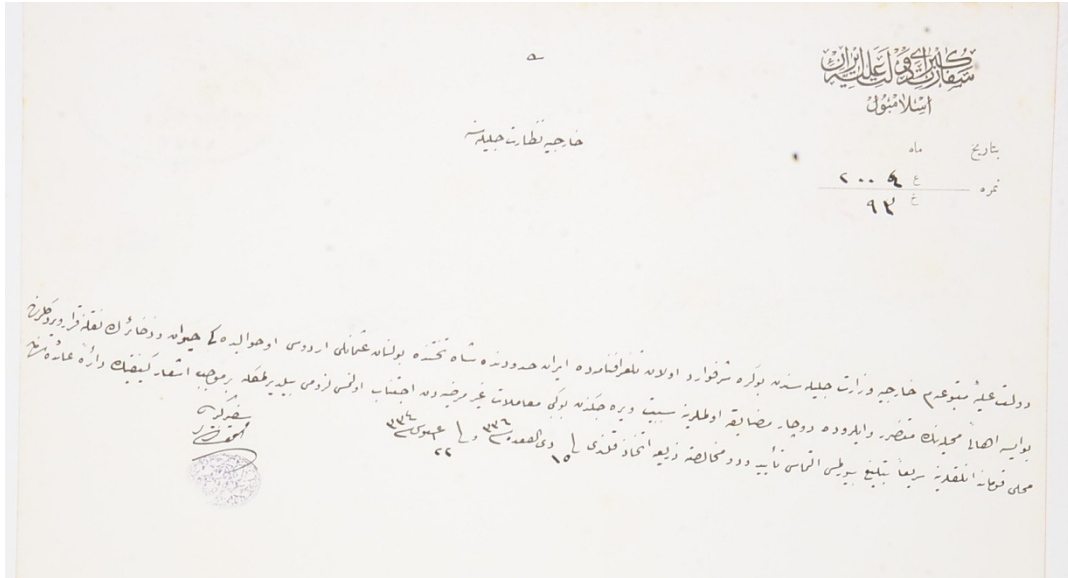 سفارت کبرای دولت علیه ایران
اسلامبول
بتاریخ ماه
نمره ع ٢٠٠٤
خ ٩٣
خارجیه نظارت جلیله سنه
دولت علیهٔ متبوعه‌م خارجیه وزارت جلیله سندن بوکره شرفوارد اولان تلغرافنامه‌ده ایران حدودنده شاه تختنده بولنان عثمانلی اردوسی او حوالیده کی حیوان و ذخائرك نقلنه قرار ویردکلرینی
بو ایسه اهالئ محلیه‌نك متضرر و ایلروده دوچار مضایقه اولملرینه سببیت ویره‌جکندن بوکبی معاملات غیر مرضیه‌دن اجتناب اولنمسی لزومی بیلدیرلمکله بر موجب اشعار کیفیتك
محلی قوماندانلقلرینه سریعاً تبلیغ بیورلمسی التماسی تأیید ودود مخالصته ذریعه اتخاذ قلندی فی ١٥ ذی القعده سنه ٣٣٦ و فی ٢٢ اغستوس سنه ٣٣٤
سفیر کبیر